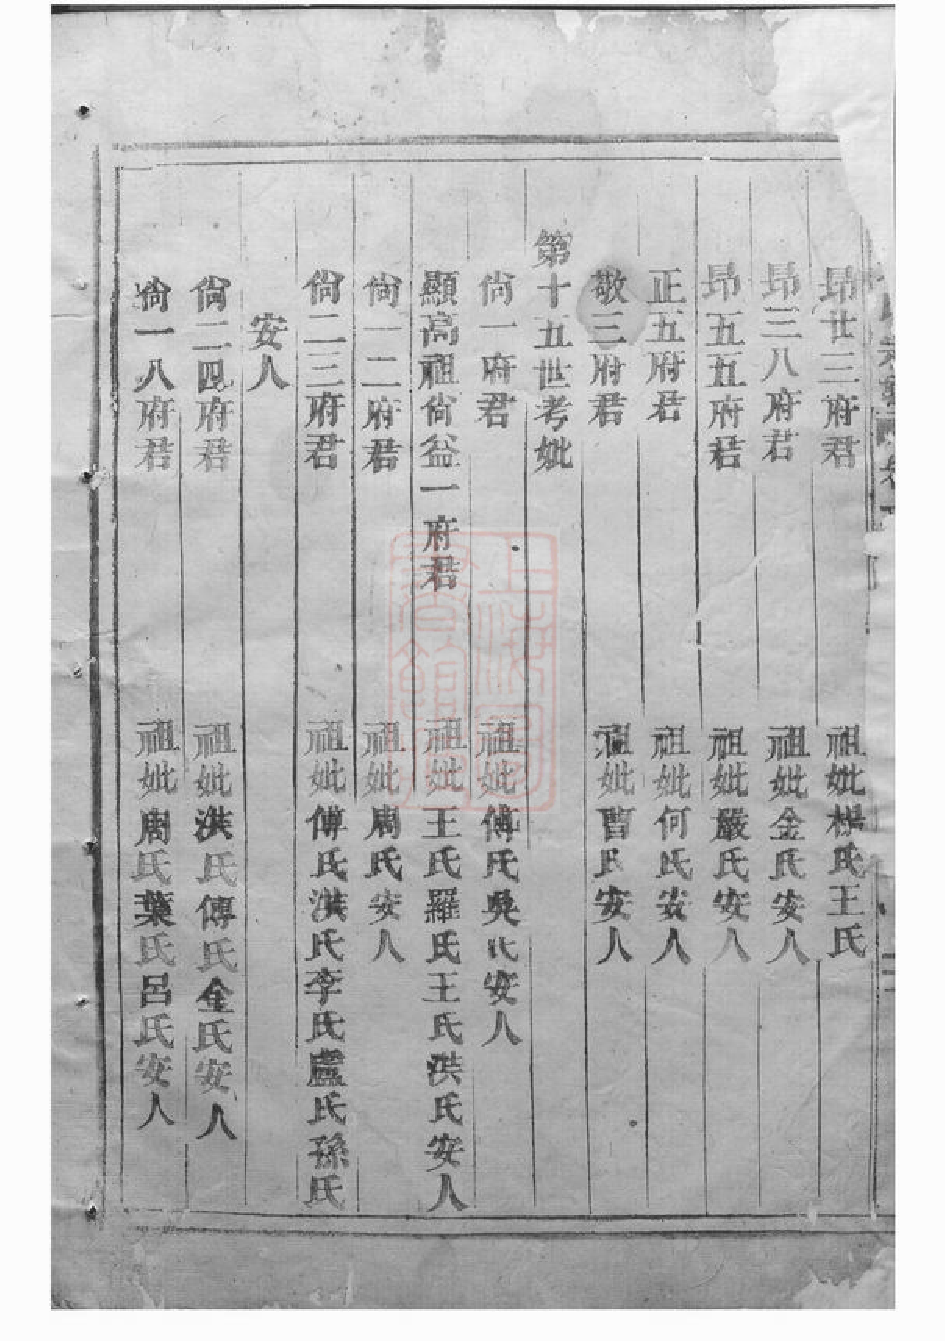 昂廿三府君　祖妣楊氏王氏
昂三八府君　祖妣金氏安人
昂五五府君　祖妣嚴氏安人
正五府君　祖妣何氏安人
敬三府君　祖妣曹氏安人
第十五世考妣
尙一府君　祖妣傅氏吳氏安人
顯高祖尙益一府君　祖妣王氏羅氏王氏洪氏安人
尙一二府君　祖妣周氏安人
尙二三府君　祖妣傅氏洪氏李氏盧氏孫氏
安人
尙二四府君　祖妣洪氏傅氏金氏安人
尙一八府君　祖妣周氏葉氏呂氏安人